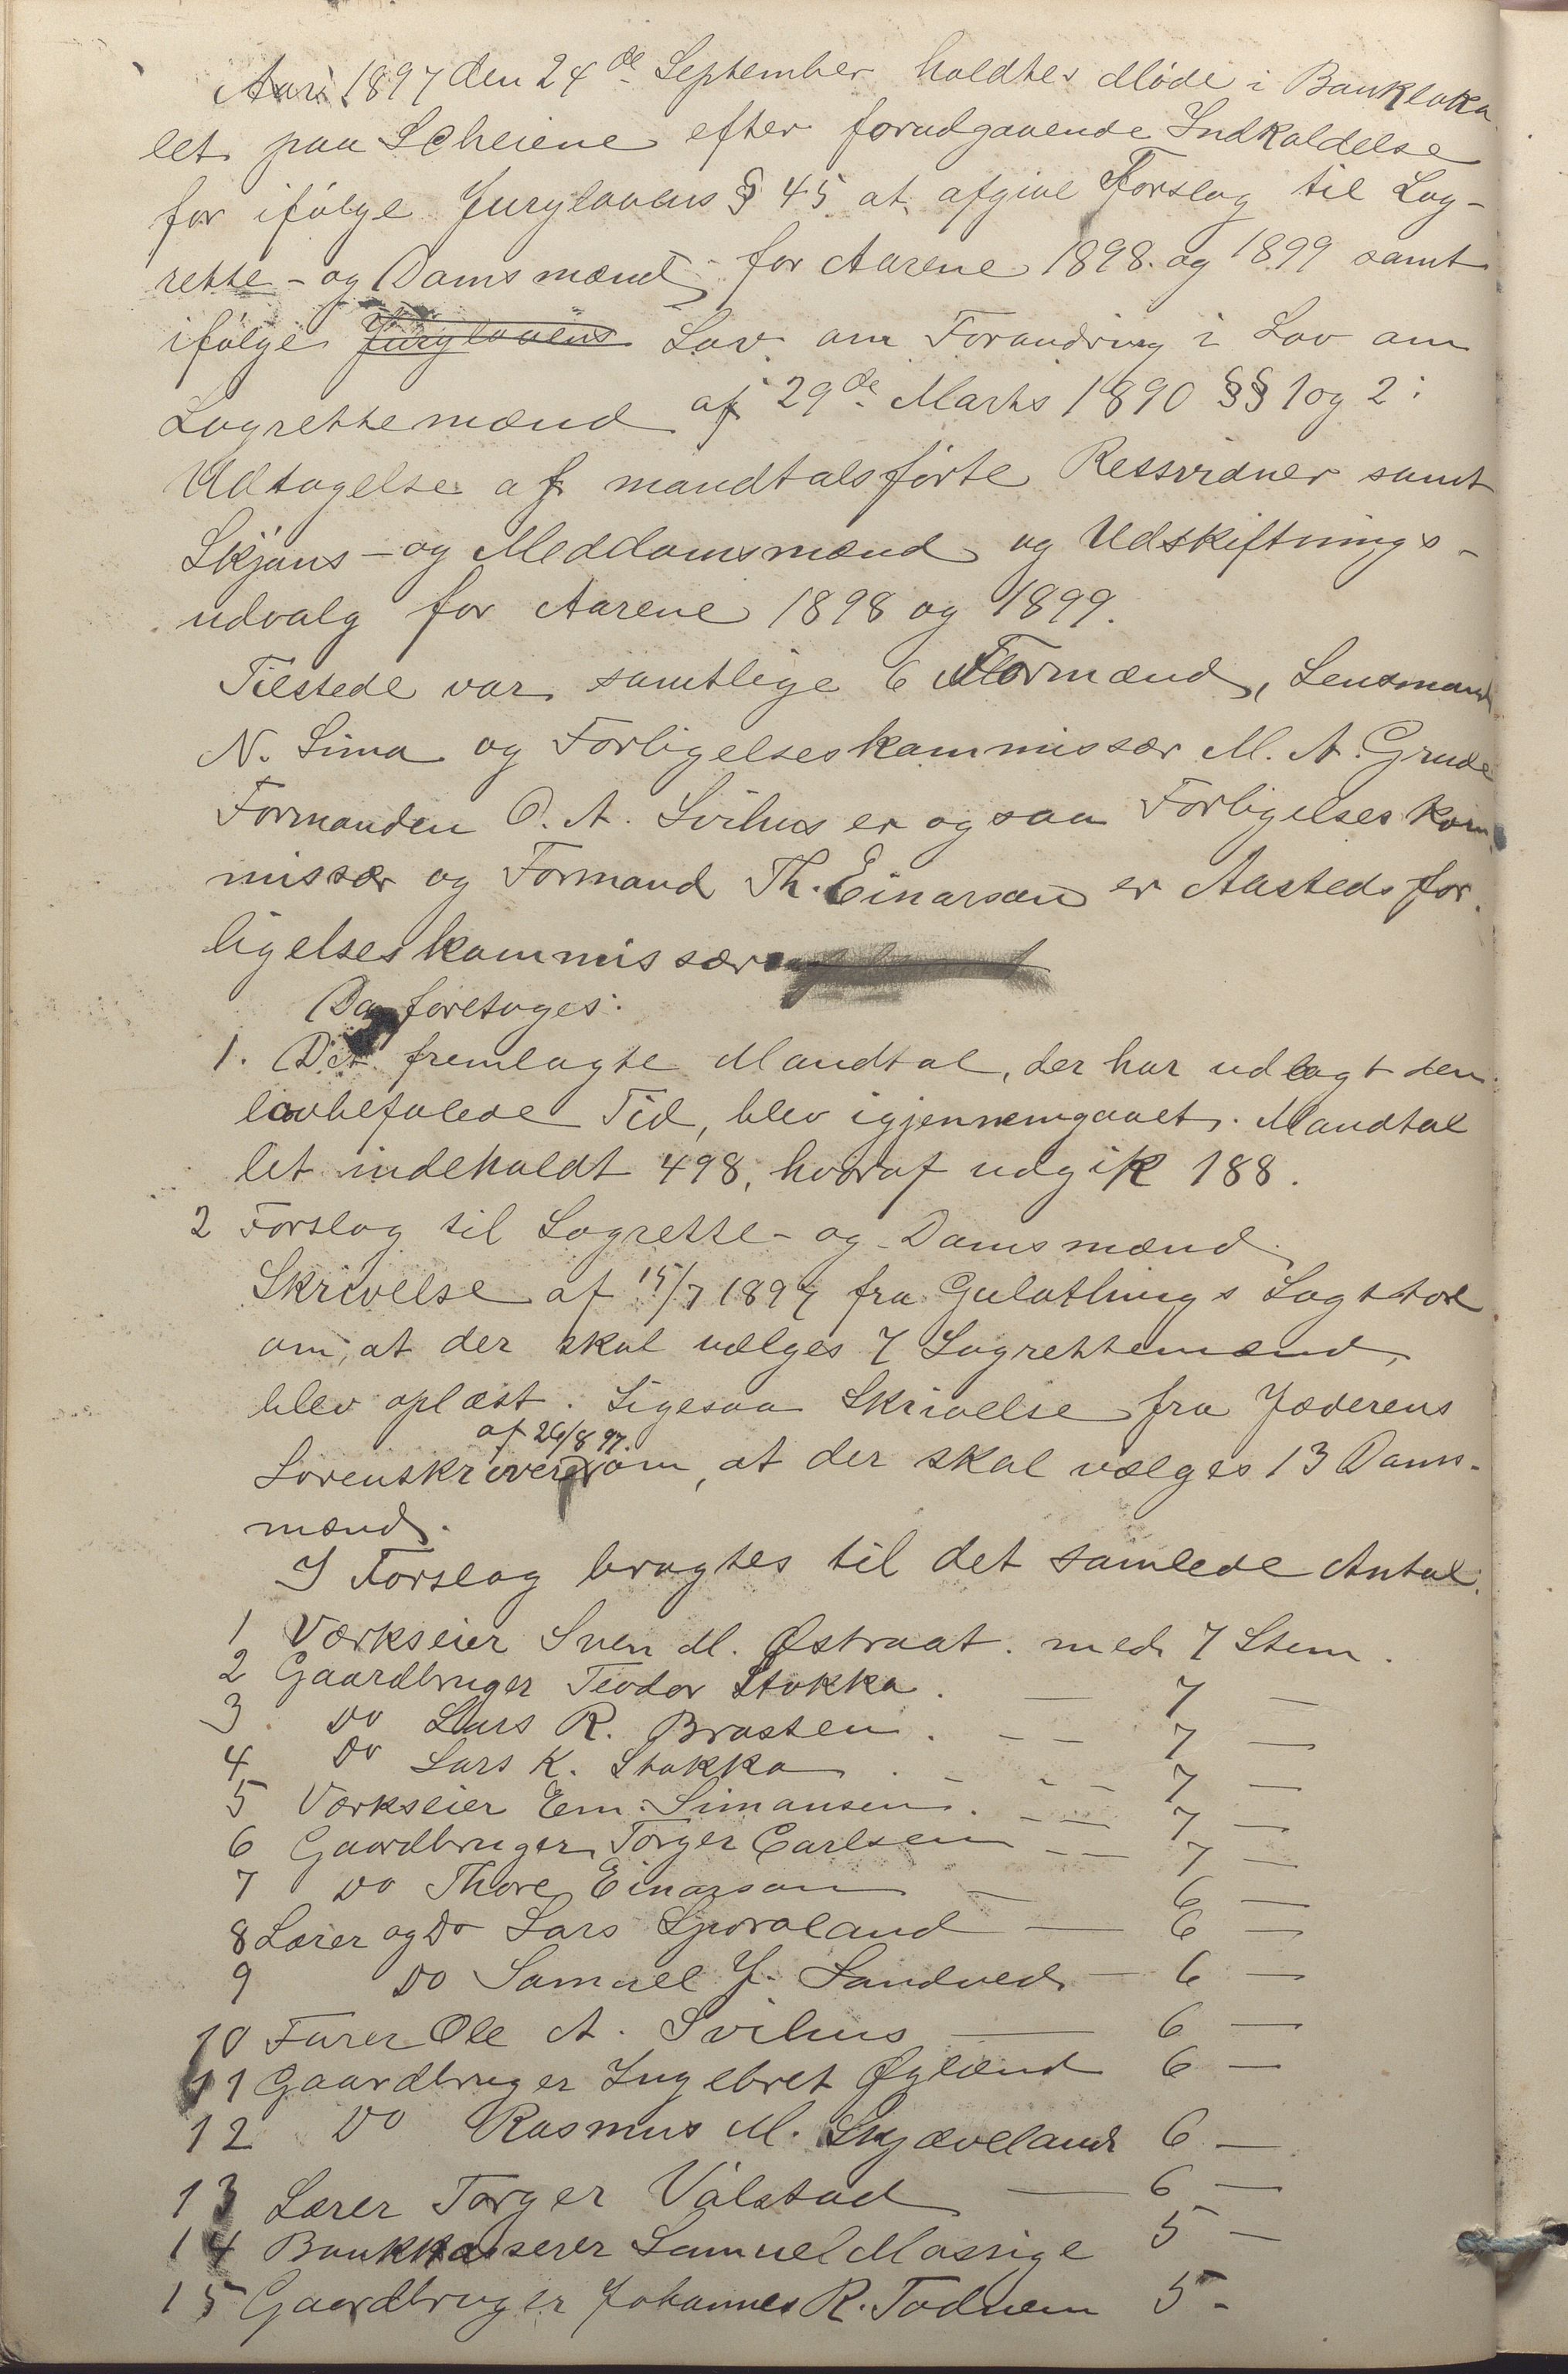 Aar 1897 den 24de September holdtes Møde i Bankloka
let paa Scheiene efter forudgaaende Indkaldelse
for ifølge Jurylovens § 45 at afgive Forslag til Lag-
rette- og Domsmænd for Aarene 1898 og 1899 samt
ifølge Jurylovens Lov om Forandring i Lov om
Lagrettemænd af 29de Marts 1890 §§ 1 og 2:
Udtagelse af mandtalsførte Retsvidner samt
Skjøns- og Meddomsmænd og Udskiftnings-
udvalg for Aarene 1898 og 1899.
Tilstede var samtlige 6 Formænd, Lensmand
N. Sima og Forligelseskommissær M. A. Grude
Formanden O. A. Svihus er ogsaa Forligelseskom
missær og Formand Th. Einarsen er Aastedsfor
ligelseskommissær
Da foretoges:
1. Det fremlagte Mandtal, der har udlagt den
lovbefalede Tid, blev igjennemgaaet. Mandtal
let indeholdt 498, hvoraf udgik 188.
2 Forslag til Lagrette- og Domsmænd
Skrivelse af 15/7 1897 fra Gulathings Lagstol
om, at der skal vælges 7 Lagrettemænd,
blev oplæst. Ligesaa Skrivelse fra Jæderens
af 26/8 97.
Sorenskriveri om, at der skal vælges 13 Doms-
mænd.
I Forslag bragtes til det samlede Antal.
1 Værkseier Sven M. Østraat. med 7 Stem.
2 Gaardbruger Teodor Stokka. — 7 —
3 Do Lars R. Brasten. - - 7 —
4 Do Lars K. Stokka. - - - 7 —
5 Værkseier Em. Simonsen. - — 7 —
6 Gaardbruger Torger Carlsen - - 7 —
7 Do Thore Einarsen — 6 —
8 Lærer og Do Lars Sporaland — 6 —
9 Do Samuel J. Sandved — 6 —
10 Fører Ole A. Svihus — 6 —
11 Gaardbruger Ingebret Øglænd 6 —
12 Do Rasmus M. Skjæveland 6 —
13 Lærer Torger Vålstad — 6 —
14 Bankkasserer Samuel Mossige 5 —
15 Gaardbruger Johannes R. Todnem 5 -